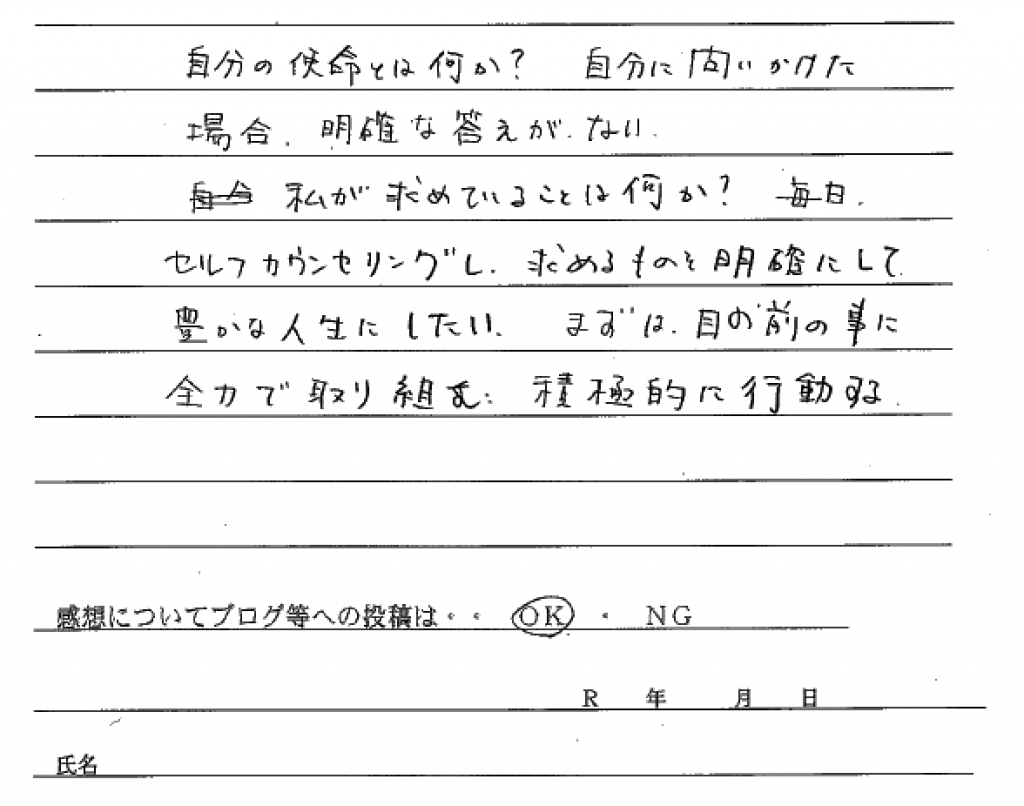 自分の使命とは何か? 自分に問いかけた
場合、明確な答えが、ない.
私が求めていることは何か? 毎日、
セルフカウンセリングし、求めるものを明確にして
豊かな人生にしたい、 まずは、目の前の事に
全力で取り組む、積極的に行動する.
感想についてブログ等への投稿は・・ OK ・ NG
R 年 月 日
氏名